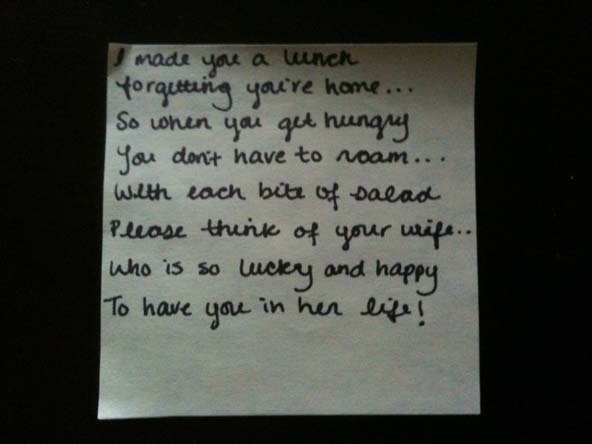 I made you a lunch
forgetting you're home...
So when you get hungry
You don't have to roam...
With each bite of salad
Please think of your wife..
who is so lucky and happy
To have you in her life!